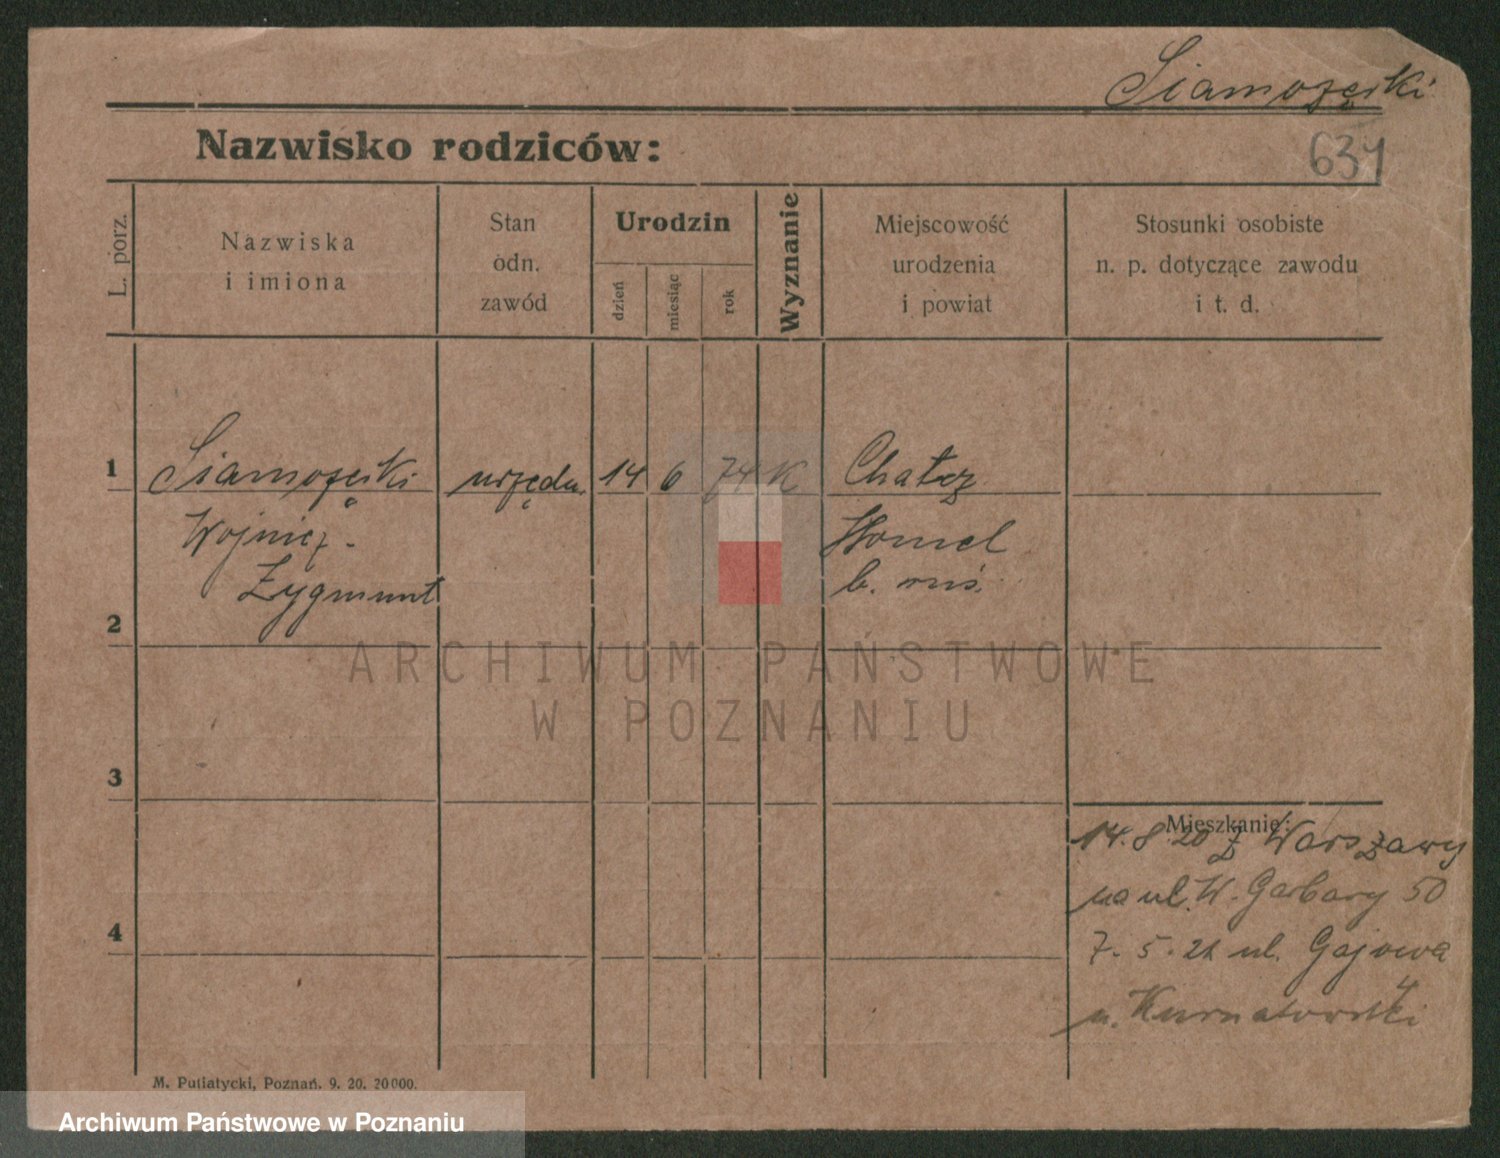 Siamozęski
634
Nazwisko rodziców:
L. porz.
Nazwiska
i imiona
Stan
odn.
zawód
Urodzin
dzień
miesiąc
rok
Wyznanie
Miejscowość
urodzenia
i powiat
Stosunki osobiste
n. p. dotyczące zawodu
i t. d.
1 urzędn. 14 6 74 K
Homel
Zygmunt b.
2
ARCHIWUM PAŃSTWOWE
W POZNANIU
3
Mieszkanie:
14.8.20 z Warszawy
na ul. W. Garbary 50
4
7.5.21 ul. Gajowa
4
u. Kurnatowski
M. Putiatycki, Poznań. 9. 20. 20000.
Archiwum Państwowe w Poznaniu